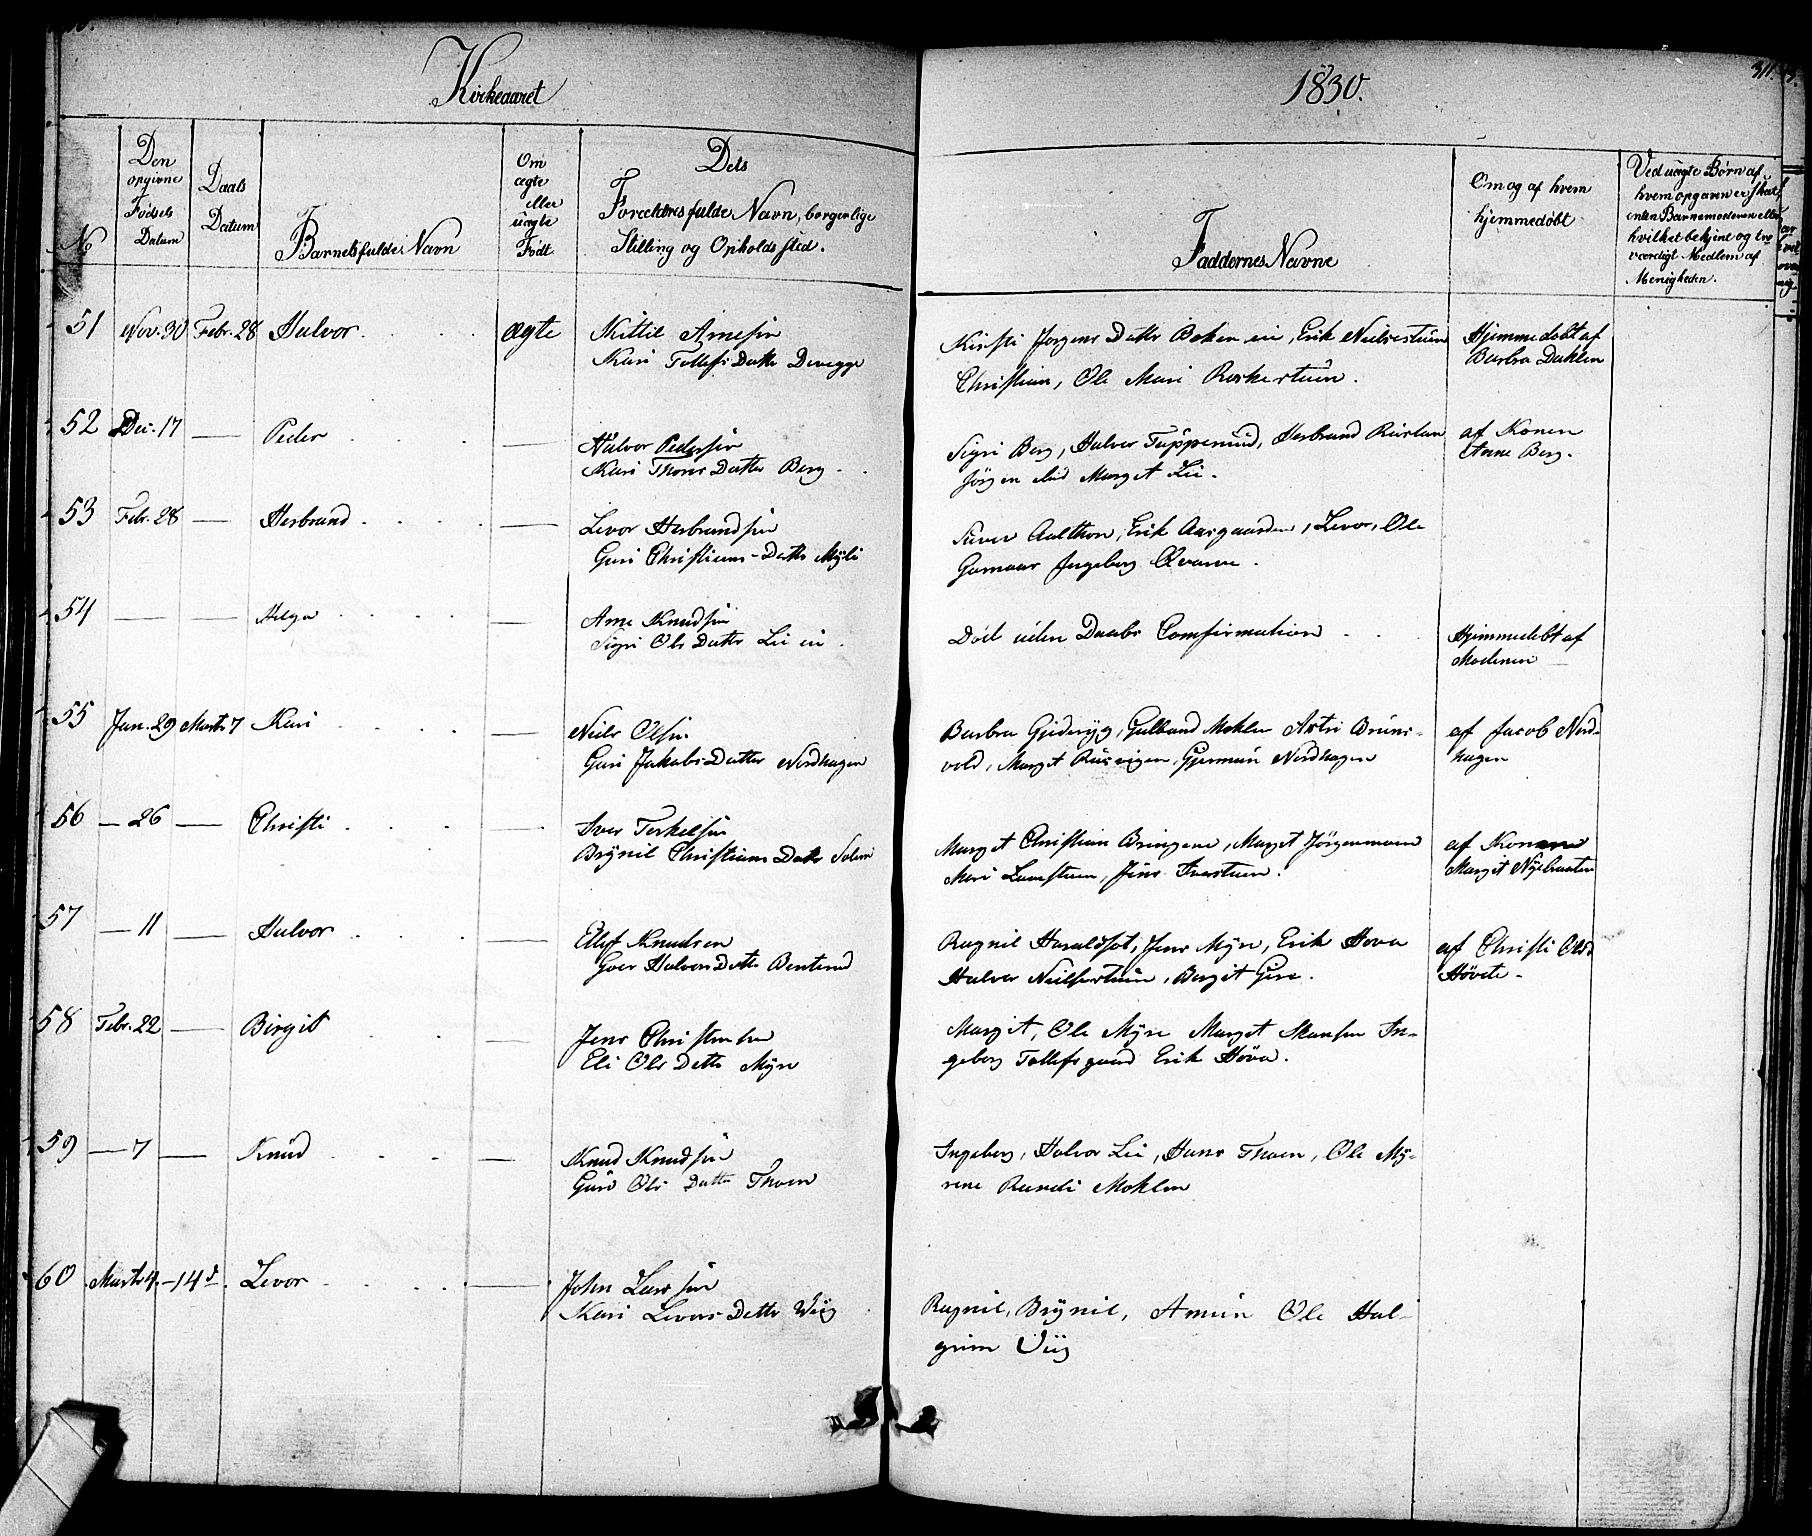 Kirkeaaret
1830.
311.
No
Den opgivne Fødsels Datum
Daabs Datum
Barnets fulde Navn
Om ægte eller uægte Født
Dets Forældres fulde Navn, borgerlige Stilling og Opholdssted.
Faddernes Navne
Om og af hvem hjemmedøbt
Ved uægte Børn af hvem opgaven er skeet enten Barnemoderen eller hvilket bekjent og troværdigt Medlem af Menigheden.
51 Nov. 30 Febr. 28 Halvor ægte Kittil Arnesøn
Kari Tollefs Datter
Kirsti Jørgens Datter Erik
Christian, Ole Mari
Hjemmedøbt af
Barbra Dahlen
52 Dec. 17 — Peder — Halvor Pedersøn
Kari Thors Datter Berg
Sigri Berg, Halvor Herbrand
Jørgen Marget Lie.
af Konen
Anne Berg.
53 Febr. 28 — Herbrand — Levor Herbrandsøn
Guri Christians-Datter Myli
Erik Aasgaarden, Levor, Ole
Ingeborg
54 — — Helga — Arne Knudsøn
Sigri Ols Datter Lie
Død uden Daabs Comfirmation
Hjemmedøbt af
Moderen
55 Jan. 29 Marts 7 Kari — Niels Olsøn
Guri Jakobs Datter Nordhagen
Barbra Gulbrand Moklen Astri Bruns-
vold, Marget Gjermun Nordhagen
af Jacob Nord-
hagen
56 — 26 — Christi — Iver Terkelsøn
Brynil Christians Datter Solem
Marget Christian Bringene, Marget Jørgenmoen
Mari Jens Iverstuen.
af Konen
Margit Nyebraaten
57 — 11 — Halvor — Ellef Knudsen
Goer Halvors Datter Benterud
Ragnil Haraldset, Jens Myre, Erik Hova
Halvor Bergit
af Christi Ols
Høvete
58 Febr. 22 — Birgit — Jens Christensøn
Eli Ols Datter Myre
Margit, Ole Myre Marget In-
geborg Tollefsgaard Erik Hova.
59 — 7 — Knud — Knud Knudsøn
Guro Ols Datter Thoen
Ingeborg, Halvor Lie, Hans Thoen, Ole My-
rene Randi Moklen
60 Marts 4. — 14 d. Levor — John Larssøn
Kari Levors Datter Wiig
Ragnil, Brynil, Amun Ole Hal-
grim Viig